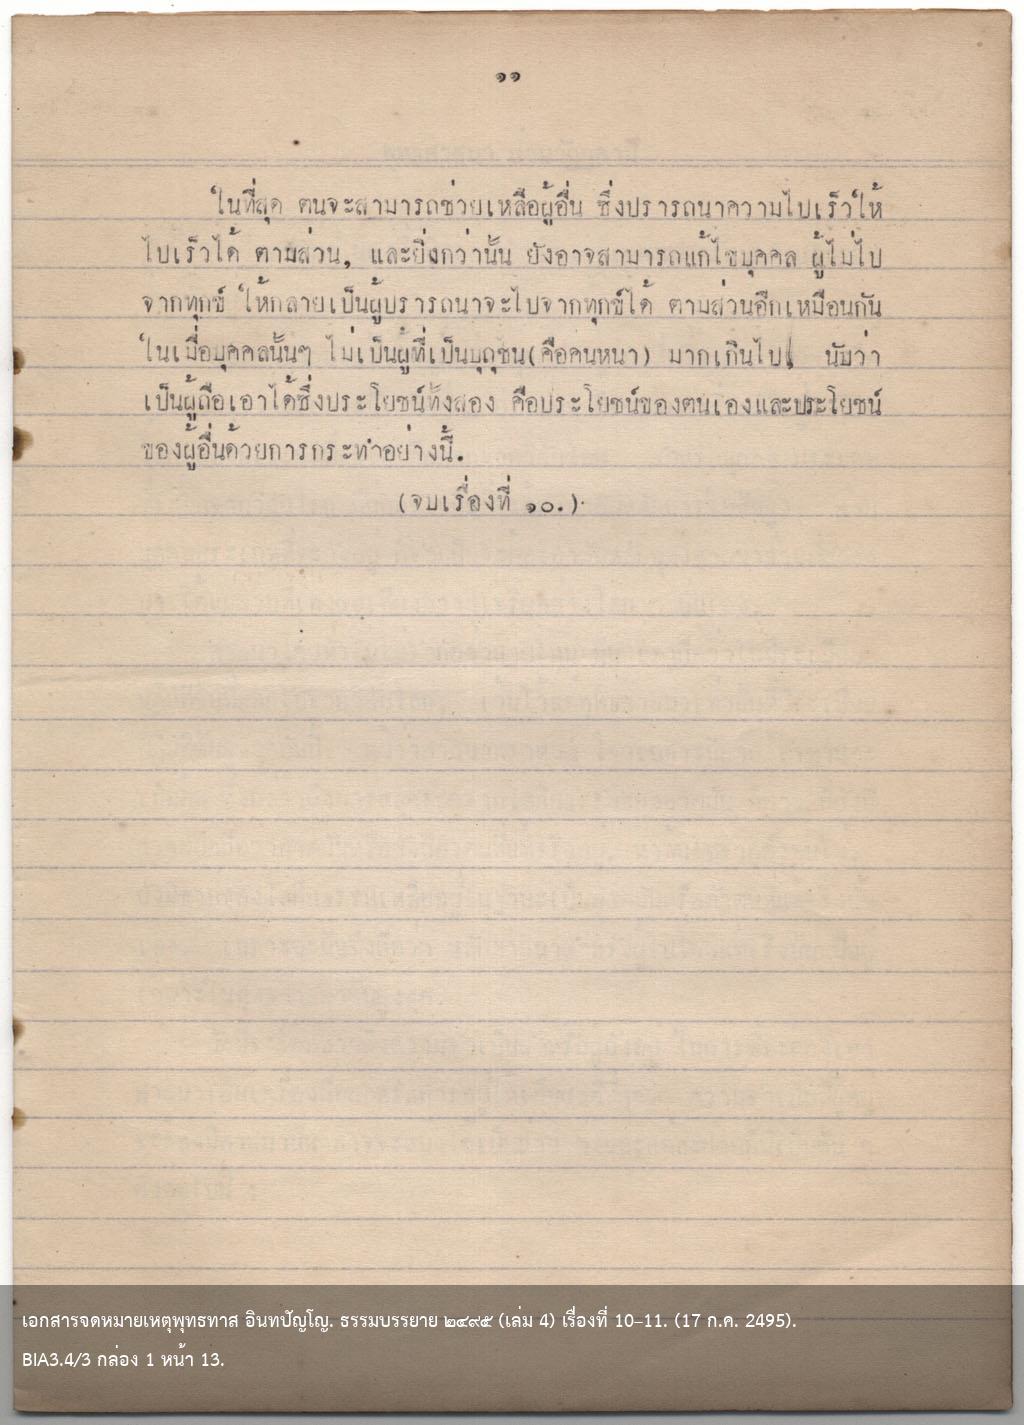 ๑๑
ในที่สุด ตนจะสามารถช่วยเหลือผู้อื่น ซึ่งปรารถนาความไปเร็วให้
ไปเร็วได้ ตามส่วน, และยิ่งกว่านั้น ยังอาจสามารถแก้ไขบุคคล ผู้ไม่ไป
จากทุกข์ ให้กลายเป็นผู้ปรารถนาจะไปจากทุกข์ได้ ตามส่วนอีกเหมือนกัน
ในเมื่อบุคคลนั้นๆ ไม่เป็นผู้ที่เป็นบุถุชน(คือคนหนา) มากเกินไป นับว่า
เป็นผู้ถือเอาได้ซึ่งประโยชน์ทั้งสอง คือประโยชน์ของตนเองและประโยชน์
ของผู้อื่นด้วยการกระทำอย่างนี้.
(จบเรื่องที่ ๑๐.)
เอกสารจดหมายเหตุพุทธทาส อินทปัญโญ. ธรรมบรรยาย ๒๔๙๕ (เล่ม 4) เรื่องที่ 10-11. (17 ก.ค. 2495).
BIA3.4/3 กล่อง 1 หน้า 13.